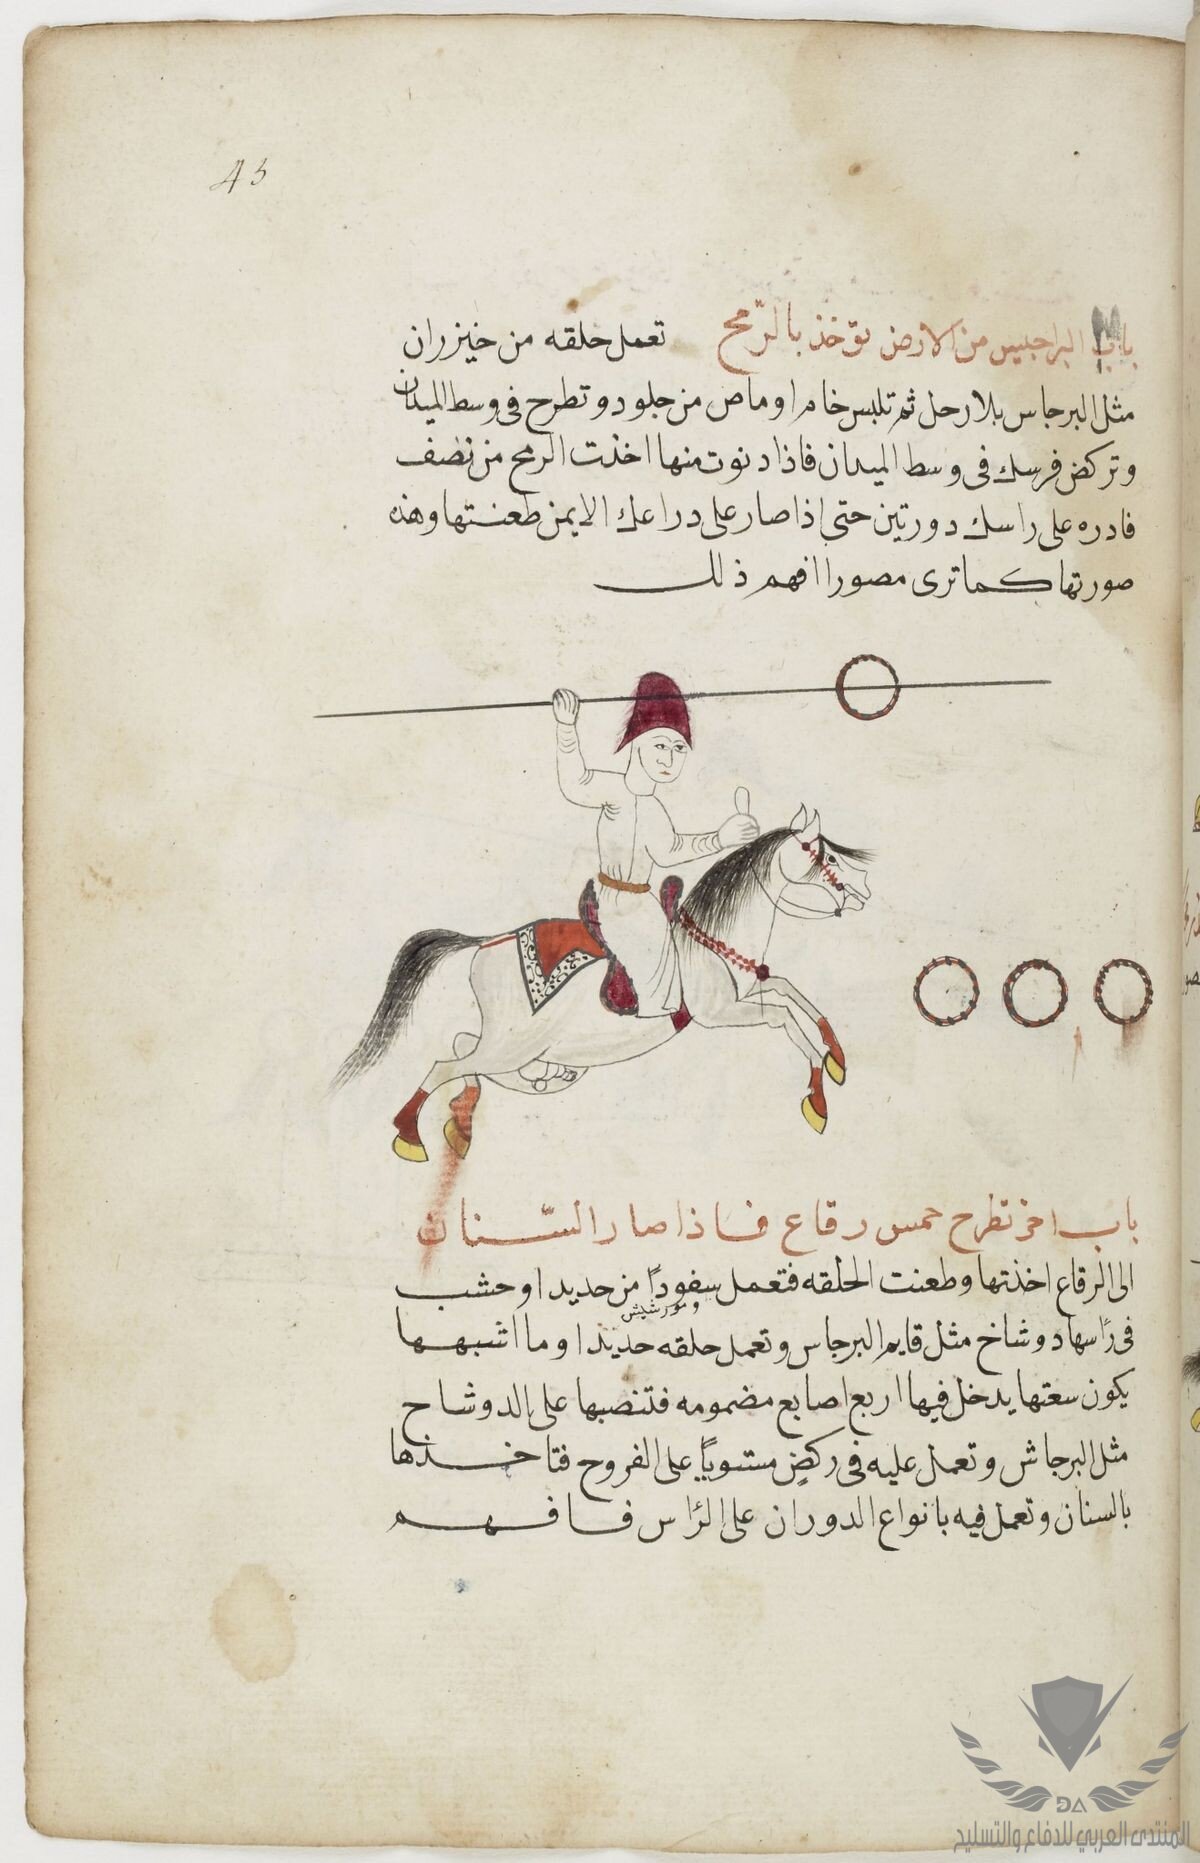 43
باب البراجيس من الارض توخذ بالرّمح تعمل حلقه من خيزران
مثل البرجاس بلا رحل ثم تلبس خام او ماص من جلود وتطرح فى وسط الميدان
وتركض فرسك فى وسط الميدان فاذا دنوت منها اخذت الرمح من نصف
فادره على راسك دورتين حتى اذا صار على دراعك الايمن طعنتها وهذه
صورتها كما ترى مصورا افهم ذلك
باب اخر تطرح خمس رقاع فاذا صار السّنان
الى الرقاع اخذتها وطعنت الحلقه فتعمل سفودًا من حديد او خشب
فى رَاسها دوشاخ مثل قايم البرجاس وتعمل حلقه حديد او ما اشبهها
يكون سعتها يدخل فيها اربع اصابع مضمومه فتنصبها على الدوشاخ
مثل البرجاس وتعمل عليه فى ركضٍ مستويًا على الفروح فتاخذها
بالسنان وتعمل فيه بانواع الدوران على الرَّاس فافهم
DA
المنتدى العربي للدفاع والتسليح